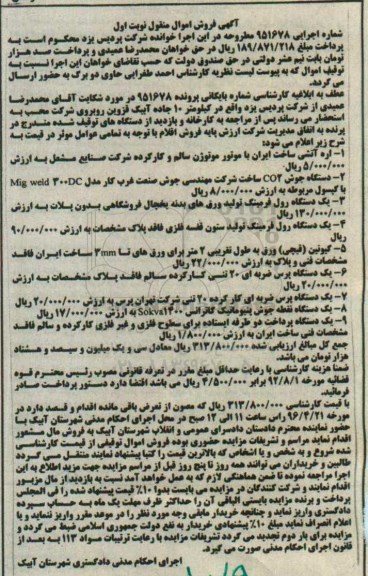 آگهی فروش اموال منقول نوبت اول
شماره اجرایی ۹۵۱۶۷۸ مطروحه در این اجرا خوانده شرکت پردیس یزد محکوم است به
پرداخت مبلغ ۱۸۹/۸۷۱/۲۱۸ ریال در حق خواهان محمدرضا عمیدی و پرداخت صد هزار
تومان بابت نیم عشر دولتی در حق صندوق دولت که حسب تقاضای خواهان این اجرا نسبت به
توقیف اموال که به پیوست لیست نظریه کارشناس احمد طغرایی حاوی دو برگ به حضور ارسال
می گردد.
عطف به ابلاغیه کارشناسی شماره بایگانی پرونده ۹۵۱۶۷۸ در مورد شکایت آقای محمدرضا
عمیدی از شرکت پردیس یزد واقع در کیلومتر ۱۰ جاده آبیک قزوین روبروی شرکت محسب به
استحضار می رساند پس از مراجعه به کارخانه و بازدید از دستگاه های توقیف شده مندرج در
پرونده به اتفاق مدیریت شرکت ارزش پایه فروش اقلام با توجه به تمامی عوامل موثر در قیمت به
شرح زیر اعلام می شود:
۱- اره آتشی ساخت ایران با موتور موتوژن سالم و کارکرده شرکت صنایع مشعل به ارزش
۵/۰۰۰/۰۰۰ ریال.
۲- دستگاه جوش CO۲ ساخت شرکت مهندسی جوش صنعت غرب کار مدل Mig weld ۳۰۰DC
با کپسول مربوطه به ارزش ۸/۰۰۰/۰۰۰ ریال
۳- یک دستگاه رول فرمینگ تولید ورق های بدنه یخچال فروشگاهی بدون پلات به ارزش
۱۳۰/۰۰۰/۰۰۰ ریال
۴- یک دستگاه رول فرمینگ تولید ستون قفسه فلزی فاقد پلاک مشخصات به ارزش ۹۰/۰۰۰/۰۰۰
ریال
۵- گیوتین (قیچی) ورق به طول تقریبی ۲ متر برای ورق های تا ۳mm ساخت ایران فاقد
مشخصات فنی و پلاک به ارزش ۲۲/۰۰۰/۰۰۰ ریال
۶- یک دستگاه پرس ضربه ای ۲۰ تنی کارکرده سالم فاقد پلاک مشخصات به ارزش
۲۰/۰۰۰/۰۰۰ ریال
۷- یک دستگاه پرس ضربه ای کار کرده ۲۰ تنی شرکت تهران پرس به ارزش ۲۰/۰۰۰/۰۰۰ ریال
۸- یک دستگاه نقطه جوش پنیوماتیک گاتراتس Sokva۱۴۰۰ به ارزش ۱۷/۰۰۰/۰۰۰ ریال
۹- یک دستگاه پرداخت دو طرفه ایستاده برای سطوح فلزی و غیر فلزی کارکرده و سالم فاقد
مشخصات فنی ساخت ایران به ارزش ۱/۸۰۰/۰۰۰ ریال
جمع کل مبالغ ارزیابی شده ۳۱۳/۸۰۰/۰۰۰ ریال معادل سی و یک میلیون و سیصد و هشتاد
هزار تومان می باشد.
ضمنا هزینه کارشناسی با رعایت حداقل مبلغ مقرر در تعرفه قانونی مصوب رئیس محترم قوه
قضائیه مورخه ۹۲/۸/۱ برابر ۴/۵۰۰/۰۰۰ ریال می باشد اقتضا دارد دستور پرداخت صادر
فرمایید.
با قیمت کارشناسی ۳۱۳/۸۰۰/۰۰۰ ریال که مصون از تعرض باقی مانده اقدام و قصد دارد در
مورخه ۹۶/۴/۲۱ راس ساعت ۱۱ الی ۱۲ صبح در محل اجرای احکام مدنی شهرستان آبیک با
حضور نماینده محترم دادستان دادسرای عمومی و انقلاب شهرستان آبیک به فروش مال مشهور
اقدام نماید مراسم و تشریفات مزایده حضوری بوده فروش اموال توقیفی از قیمت کارشناسی
شده شروع و به شخص و یا اشخاص که بالاترین قیمت را کتبا پیشنهاد نمایند منتقل می گردد
طالبین و خریداران می توانند همه روز تا پنج روز قبل از مراسم مزایده جهت مزید اطلاع به این
اجرا مراجعه نموده تا ضمن هماهنگی لازم که به عمل خواهد آمد نسبت به بازدید از مال مزبور
اقدام نمایند و شرکت کنندگان در مزایده می بایست بدوا ۱۰٪ قیمت پیشنهاد شده را فی المجلس
پرداخت و برنده مزایده بایستی الباقی آن را حداکثر ظرف مهلت یک ماه به حساب سپرده
دادگستری واریز نماید و چنانچه خریدار مابقی وجه مورد نظر را در موعد مقرر واریز ننماید و یا
اعلام انصراف نماید مبلغ ۱۰٪ پیشنهادی خریدار به نفع دولت جمهوری اسلامی ضبط می گردد و
مزایده برای بار دوم تجدید می گردد تشریفات مزایده با رعایت ترتیبات مواد ۱۱۳ به بعد از
قانون اجرای احکام مدنی صورت می گیرد.
اجرای احکام مدنی دادگستری شهرستان آبیک